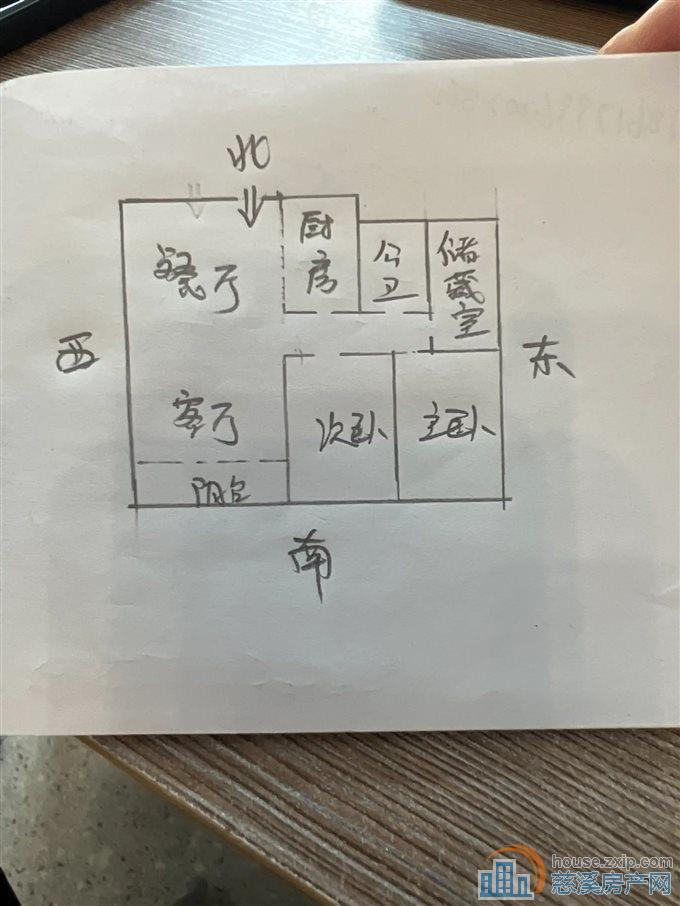 北
餐厅
厨房
公卫
储藏室
西
东
客厅
次卧
主卧
阳台
南
house.zxip.com
慈溪房产网